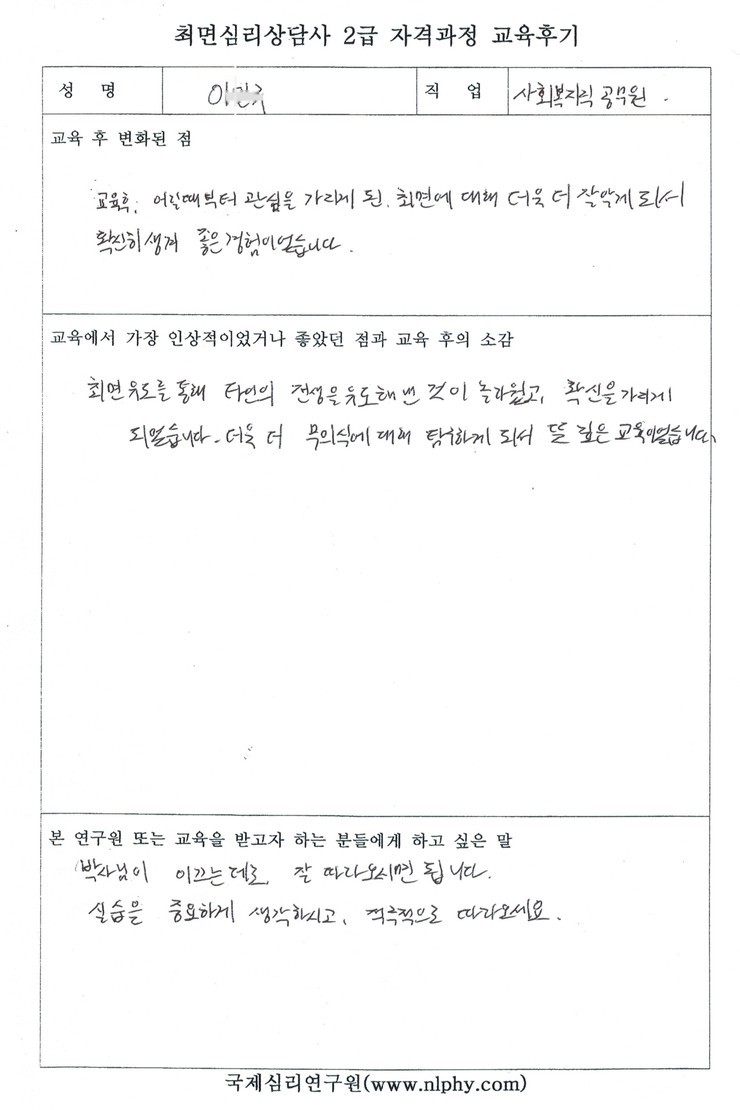 최면심리상담사 2급 자격과정 교육후기
성 명 이 직 업 사회복지직 공무원.
교육 후 변화된 점
교육후, 어릴때부터 관심을 가리게 된. 최면에 대해 더욱 더 잘알게 되서
확신히생겨 좋은경험이었습니다.
교육에서 가장 인상적이었거나 좋았던 점과 교육 후의 소감
최면유도를 통해 타인의 전생을 유도해 낸 것이 놀라웠고, 확신을 가리게
되었습니다. 더욱 더 무의식에 대해 탐구하게 되서 뜻 깊은 교육이었습니다.
본 연구원 또는 교육을 받고자 하는 분들에게 하고 싶은 말
박사님이 이끄는데로, 잘 따라오시면 됩니다.
실습을 중요하게 생각하시고, 적극적으로 따라오세요.
국제심리연구원(www.nlphy.com)